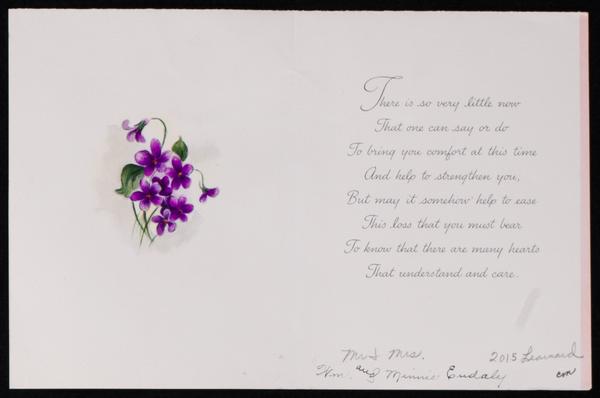 There is so very little now
That one can say or do
To bring you comfort at this time
And help to strengthen you,
But may it somehow help to ease
This loss that you must bear
To know that there are many hearts
That understand and care.
Mr & Mrs. 2015 Leonard
Wm. and Minnie Endaly